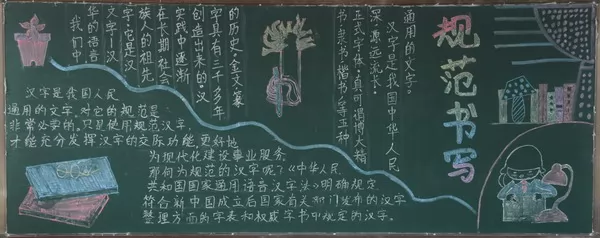 规范书写
通用的文字。
汉字是我国中华人民
深、源远流长、
正式字体,真可谓博大精
书、隶书、楷书、等五种
的历史,金文、篆
字具有三千多年
创造出来的。汉
实践中逐渐
在长期社会
族人的祖先
字,它是汉
文字—汉
华的语音
我们中
汉字是我国人民
通用的文字,对它的规范是
非常必要的。只是使用规范汉字
才能充分发挥汉字的交际功能,更好地
为现代化建设事业服务
那何为规范的汉字呢?《中华人民
共和国国家通用语音汉字法》明确规定
符合新中国成立后国家有关部门发布的汉字
整理方面的字表和权威字书中规定的汉字。